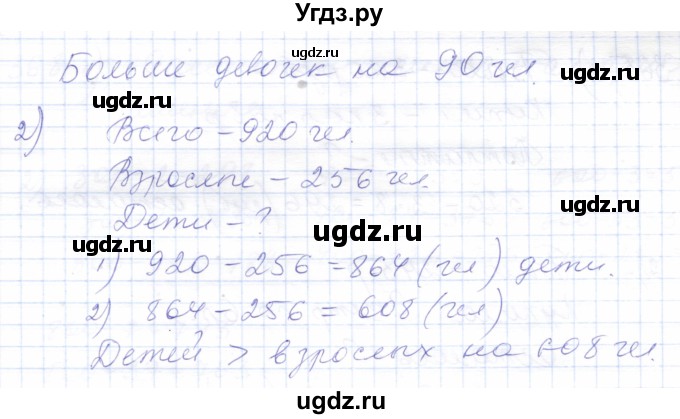 Угдз.ру
ugdz.ru
Больше девочек на 90 чел.
ugdz.ru ugdz.ru
2) Всего – 920 чел.
ugdz.ru
Взрослые – 256 чел.
ugdz.ru
Дети – ?
ugdz.ru ugdz.ru
1) 920 – 256 = 864 (чел) дети.
2) 864 – 256 = 608 (чел)
ugdz.ru ugdz.ru
Детей > взрослых на 608 чел.
ugdz.ru